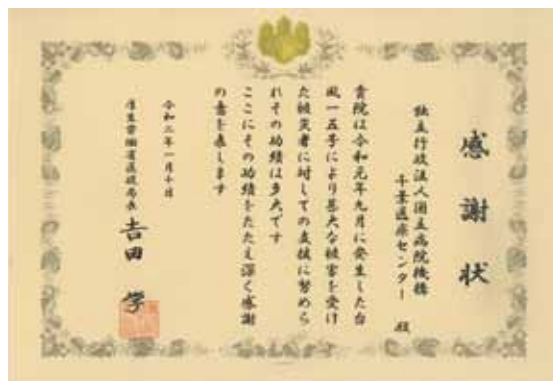 感謝状
独立行政法人国立病院機構
千葉医療センター 殿
貴院は令和元年九月に発生した台
風一五号により甚大な被害を受け
た被災者に対しての支援に努めら
れその功績は多大です
ここにその功績をたたえ深く感謝
の意を表します
令和二年一月十日
厚生労働省医政局長 吉田 学